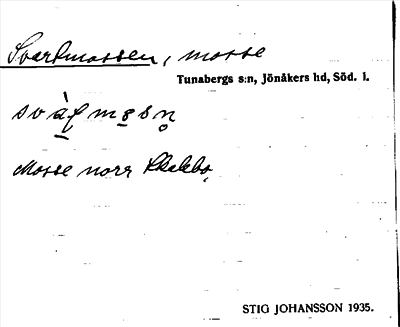 Svartmossen, mosse
Tunabergs s:n, Jönåkers hd, Söd. l.
Mosse norr
STIG JOHANSSON 1935.